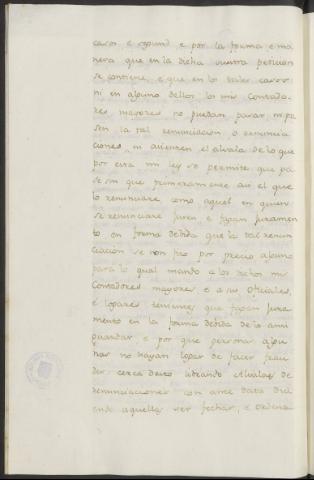 casos, e segund e por la forma e ma
nera que en la dicha vuestra peticion
se contiene, e que en los tales casos
ni en alguno dellos los mis Contado-
res mayores no puedan pasar, ni pa
sen la tal renunciacion o renuncia
ciones, ni asienten el alvala de lo que
por esta mi ley se permite que pa
se sin que primeramente asi el que
lo renunciare como aquel en quien
se renunciare juren e fagan juramen
to en forma debida que la tal renun
ciación se non fizo por precio alguno
para lo qual mando a los dichos mis
Contadores mayores e a sus oficiales,
e logares tenientes que fagan jura
mento en la forma debida de lo ansi
guardar e por que personas algu
nas no hayan logar de facer frau
des cerca desto librando Alvalas de
renunciaciones con ante data dici
endo aquellas ser fechas, e ordena